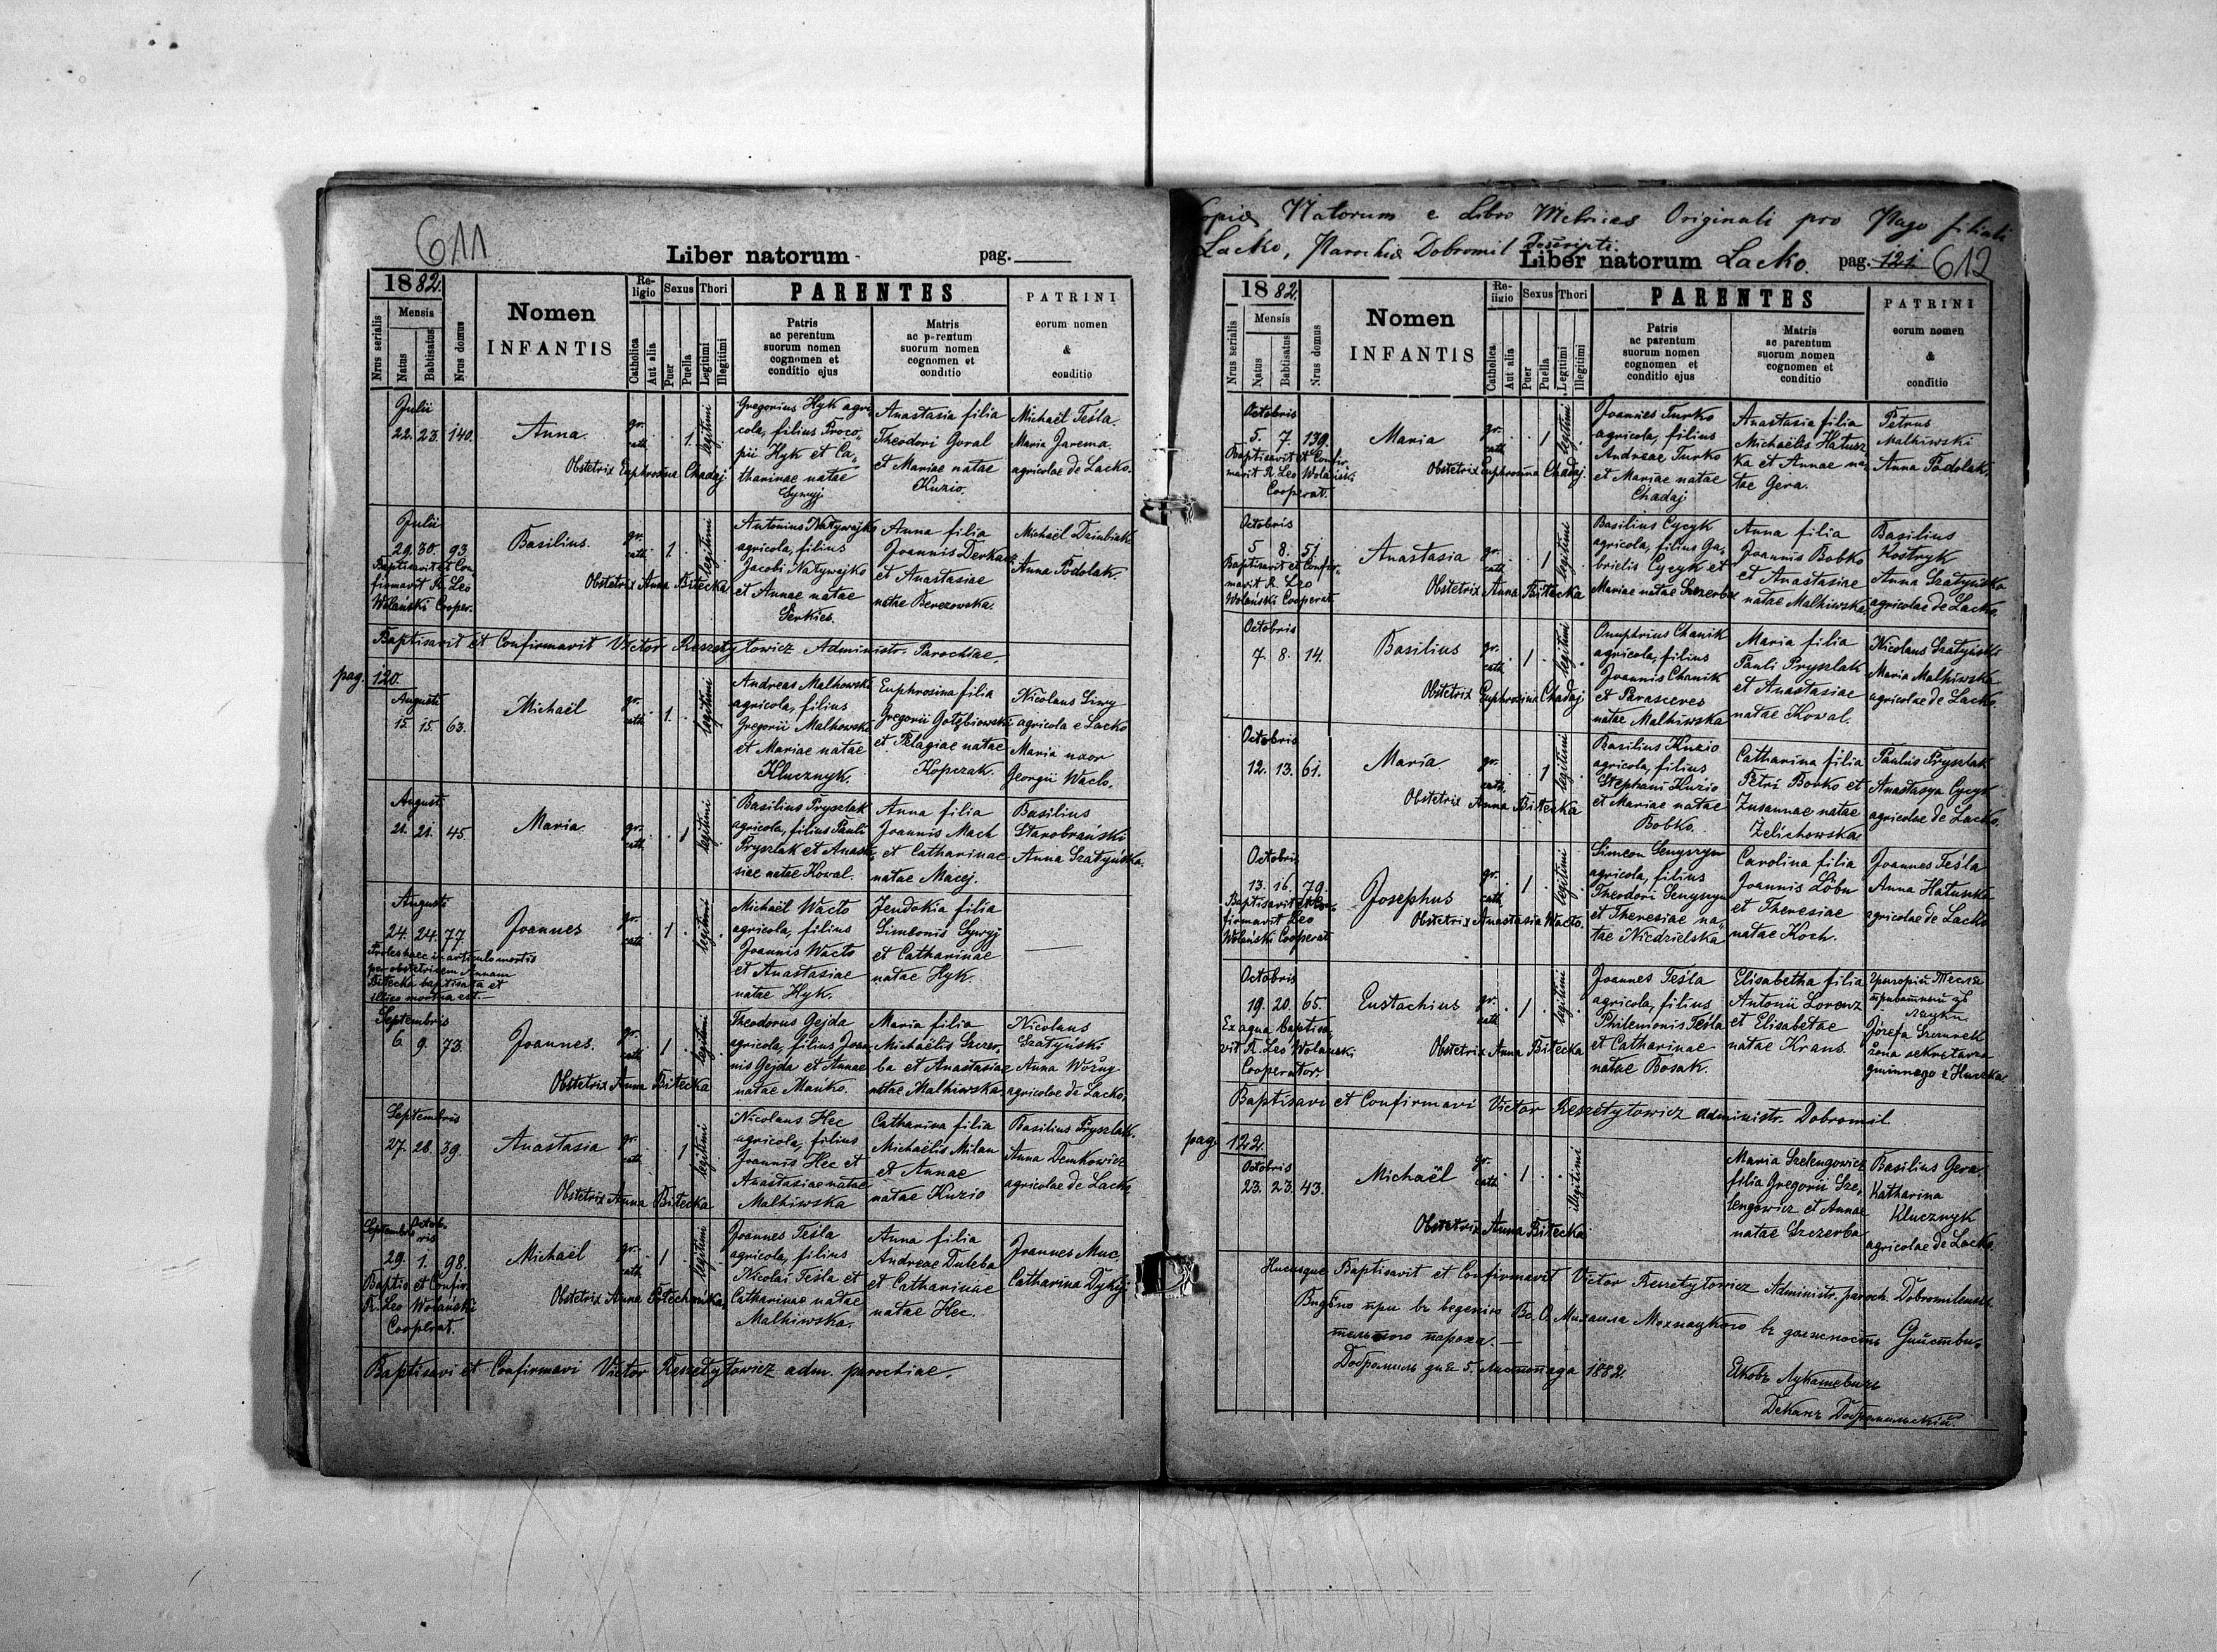 611
Liber natorum
pag.
1882.
Nrus serialis
Mensis
Natus
Babtisatus
Nrus domus
Nomen
INFANTIS
Religio
Catholica
Aut alia
Sexus
Puer
Puella
Thori
Legitimi
Illegitimi
PARENTES
Patris
ac perentum
suorum nomen
cognomen et
conditio ejus
Matris
ac p-rentum
suorum nomen
cognomen et
conditio
PATRINI
eorum nomen
&
conditio
Julii
22. 23. 140.
Anna.
gr.
cath.
1.
legitimi
Obstetrix Euphrosina Chadaj.
Gregorius Hyk agri
cola, filius Proco-
pii Hyk et Ca-
tharinae natae
Sywyj
Anastasia filia
Theodori Goral
et Mariae natae
Kuzio.
Michaël Teśla.
Maria Jarema.
agricolae de Lacko.
Julii
29. 30. 93
Baptisavit et Con
firmavit R. Leo
Wolański Cooper.
Basilius.
gr.
cath.
1.
legitimi
Obstetrix Anna Bitecka
Antonius Natywajko
agricola, filius
Jacobi Natywajko
et Annae natae
Serkies.
Anna filia
Joannis Derkacz
et Anastasiae
natae Berezowska.
Michaël Dziubiak
Anna Podolak.
Baptisavit et Confirmavit Victor Reszetytowicz Administr. Parochiae.
pag. 120.
Augusti
15. 15. 63.
Michaël
gr.
cath.
1.
legitimi
Andreas Malhowski
agricola, filius
Gregorii Malhowski
et Mariae natae
Klucznyk.
Euphrosina filia
Gregorii Gołębiowski
et Pelagiae natae
Kopczak.
Nicolaus Siwy
agricola e Lacko
Maria uxor
Georgii Wacło.
Augusti
21. 21. 45
Maria
gr.
cath.
1
legitimi
Basilius Pryszlak
agricola, filius Pauli
Pryszlak et Anasta
siae natae Kowal.
Anna filia
Joannis Mach
et Catharinae
natae Macej.
Basilius
Starobrański
Anna Szatyńska.
Augusti
24. 24. 77.
Proles haec in articulo mortis
per obstetricem Annam
Bitecka baptisata et
illico mortua est.
Joannes
gr.
cath.
1.
legitimi
Michaël Wacło
agricola, filius
Joannis Wacło
et Anastasiae
natae Hyk.
Jeudokia filia
Simeonis Sywyj
et Catharinae
natae Hyk.
Septembris
6. 9. 73.
Joannes.
gr.
cath.
1
legitimi
Obstetrix Anna Bitecka
Theodorus Gejda
agricola, filius Joan
nis Gejda et Annae
natae Manko.
Maria filia
Michaëlis Szczer-
ba et Anastasiae
natae Malhiwska
Nicolaus
Szatyński
Anna Woźny
agricolae de Lacko.
Septembris
27. 28. 39.
Anastasia
gr.
cath.
1
legitimi
Obstetrix Anna Bitecka
Nicolaus Hec
agricola, filius
Joannis Hec et
Anastasiae natae
Malhiwska
Catharina filia
Michaëlis Milan
et Annae
natae Kuzio
Basilius Pryszlak.
Anna Demkowicz
agricolae de Lacko.
Septembris Octobris
29. 1. 98.
Baptis. et Confir.
R. Leo Wolański
Cooperat.
Michaël
gr.
cath.
1
legitimi
Joannes Teśla
agricola, filius
Nicolai Teśla et
Catharinae natae
Malhiwska.
Anna filia
Andreae Duleba
et Catharinae
natae Hec.
Joannes Muc
Catharina Dykyj
Baptisavi et Confirmavi Victor Reszetytowicz adm. parochiae.
Copia Natorum e Libro Metrices Originali pro Pago filiali
Lacko, Parochiae Dobromil descripti.
Liber natorum Lacko. pag. 121 612
1882.
Nrus serialis
Mensis
Natus
Babtisatus
Nrus domus
Nomen
INFANTIS
Religio
Catholica
Aut alia
Sexus
Puer
Puella
Thori
Legitimi
Illegitimi
PARENTES
Patris
ac parentum
suorum nomen
cognomen et
conditio ejus
Matris
ac parentum
suorum nomen
cognomen et
conditio
PATRINI
eorum nomen
&
conditio
Octobris
5. 7. 139.
Baptisavit et Confir
mavit R. Leo Wolański
Cooperat.
Maria
gr.
cath.
1
legitimi
Obstetrix Euphrosina Chadaj.
Joannes Turko
agricola, filius
Andreae Turko
et Mariae natae
Chadaj
Anastasia filia
Michaëlis Hatusz
ka et Annae na
tae Gera.
Petrus
Malhiwski
Anna Podolak.
Octobris
5 8. 51
Baptisavit et Confir-
mavit R. Leo
Wolański Cooperat.
Anastasia
gr.
cath.
1
legitimi
Obstetrix Anna Bitecka
Basilius Cycyk
agricola, filius Ga-
brielis Cycyk et
Mariae natae Szczerba
Anna filia
Joannis Bobko
et Anastasiae
natae Malhiwska.
Basilius
Kostryk
Anna Szatyńska
agricolae de Lacko.
Octobris
7. 8. 14.
Basilius
gr.
cath.
1
legitimi
Obstetrix Euphrosina Chadaj
Onuphrius Chanik
agricola, filius
Joannis Chanik
et Parasceves
natae Malhiwska
Maria filia
Pauli Pryszlak
et Anastasiae
natae Kowal.
Nicolaus Szatyński
Maria Malhiwska
agricolae de Lacko
Octobris
12. 13. 61.
Maria
gr.
cath.
1
legitimi
Obstetrix Anna Bitecka
Basilius Kuzio
agricola, filius
Stephani Kuzio
et Mariae natae
Bobko.
Catharina filia
Petri Borko et
Zusannae natae
Zelichowska
Paulus Pryszlak
Anastasya Cycyk
agricolae de Lacko.
Octobris
13. 16. 79.
Baptisavit et Con-
firmavit Leo
Wolański Cooperat
Josephus
gr.
cath.
1
legitimi
Obstetrix Anastasia Wacło.
Simeon Senyszyn
agricola, filius
Theodori Senyszyn
et Theresiae na
tae Niedzielska
Carolina filia
Joannis Löbn
et Theresiae
natae Koch.
Joannes Teśla
Anna Hatuszka
agricolae de Lacko
Octobris
19. 20. 65.
Ex aqua baptisa
vit R. Leo Wolański
Cooperator.
Eustachius
gr.
cath.
1
legitimi
Obstetrix Anna Bitecka
Joannes Teśla
agricola, filius
Philemonis Teśla
et Catharinae
natae Bosak.
Elisabetha filia
Antonii Lorenz
et Elisabetae
natae Kraus.
Григорій Тесля
Józefa
żona sekretarza
gminnego z Huczka
Baptisavi et Confirmavi Victor Reszetytowicz administr. Dobromil
pag. 122.
Octobris
23. 23. 43.
Michaël
gr.
cath.
1
illegitimi
Obstetrix Anna Bitecka
Maria Szelengowicz
filia Gregorii Sze-
lengowicz et Annae
natae Szczerba
Basilius Gera
Katharina
Klucznyk
agricolae de Lacko.
Hucusque Baptisavit et Confirmavit Victor Reszetytowicz Administr. paroch. Dobromilensis.
Видѣно при въ веденію Вс. О. Михаила Мохнацкого въ должность Дѣйстви-
тельного пароха.—
Добромиль дня 5. Листопада 1882.
Яковъ Лукашевичъ
Деканъ Добромильскій.